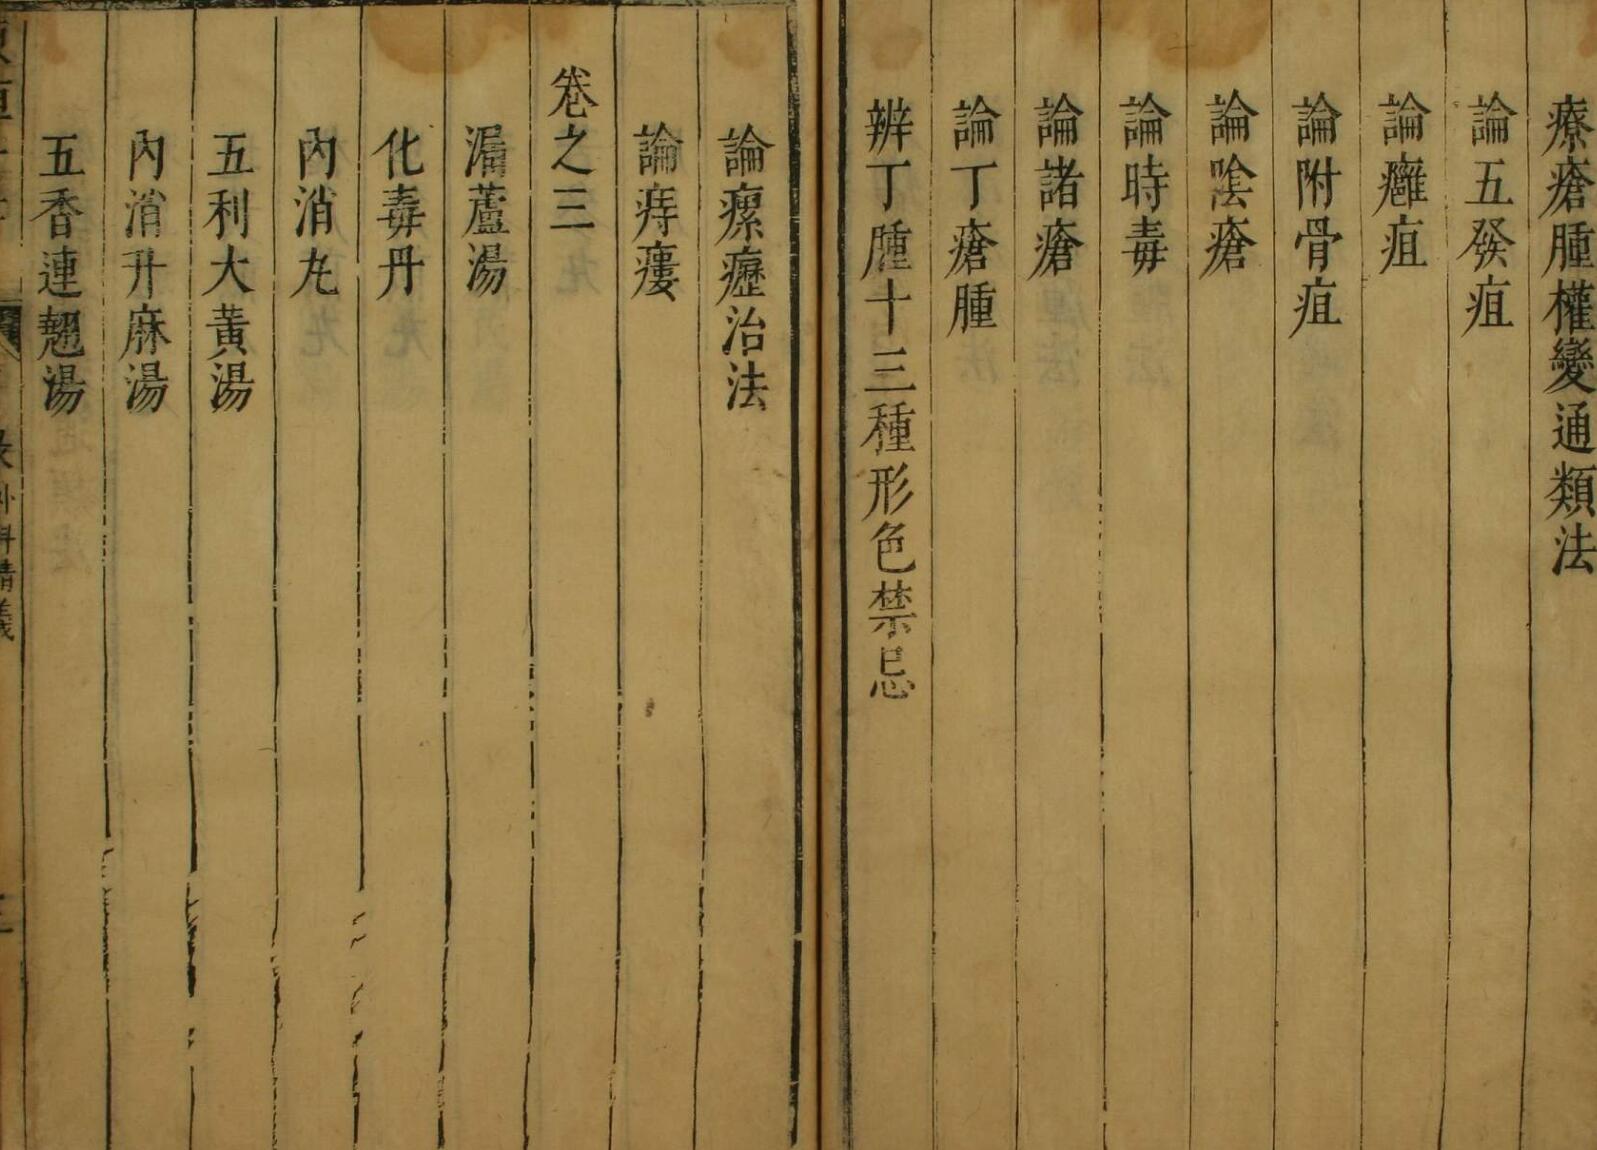 療瘡腫權變通類法
論五發疽
論癰疽
論附骨疽
論陰瘡
論時毒
論諸瘡
論丁瘡腫
辨丁腫十三種形色禁忌
論瘰癧治法
論痔瘻
卷之三
漏蘆湯
化毒丹
內消丸
五利大黃湯
內消升麻湯
五香連翹湯
外科精義